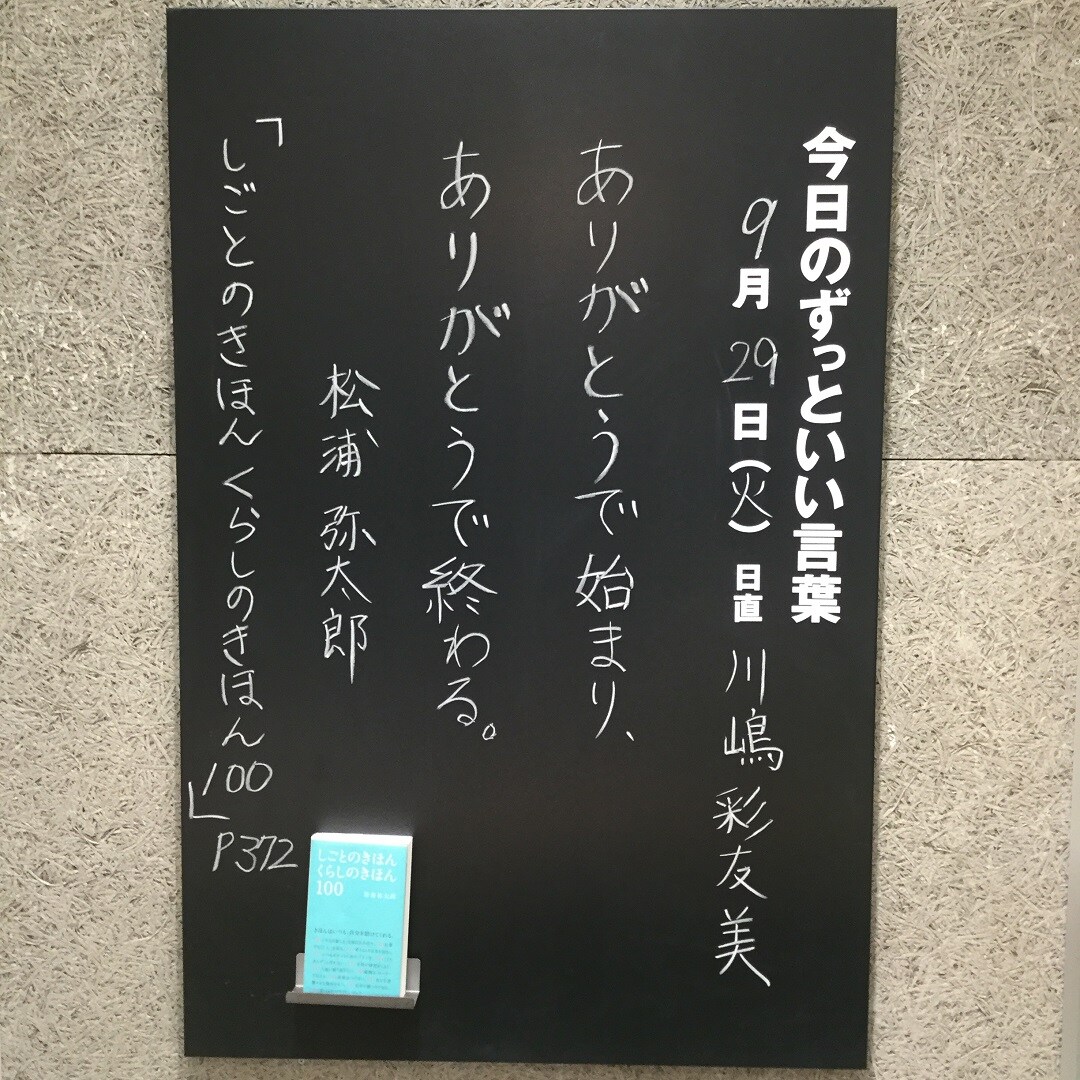 今日のずっといい言葉
9月29日(火) 日直 川嶋彩友美
ありがとうで始まり、
ありがとうで終わる。
松浦 弥太郎
「しごとのきほん くらしのきほん 100」
P372
しごとのきほん
くらしのきほん
100
松浦弥太郎